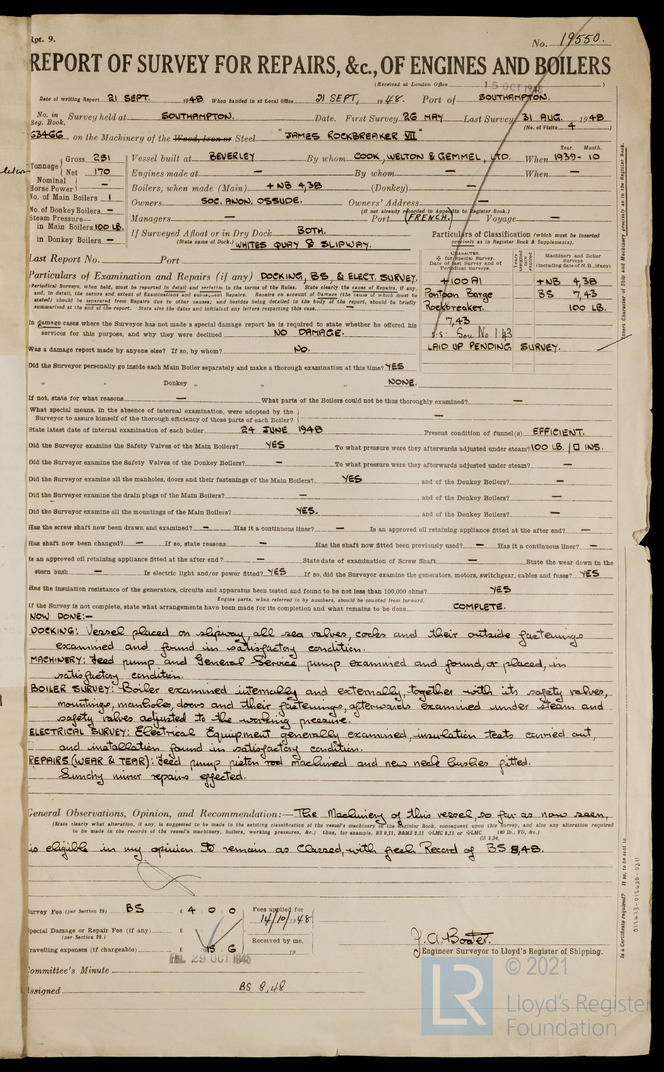 Rpt. 9.
No. 19550.
REPORT OF SURVEY FOR REPAIRS, &c., OF ENGINES AND BOILERS
(Received at London Office 15 OCT 1948 )
Date of writing Report 21 SEPT. 1948 When handed in at Local Office 21 SEPT, 1948. Port of SOUTHAMPTON.
No. in Reg. Book. Survey held at SOUTHAMPTON. Date. First Survey 26 MAY Last Survey 31 AUG. 1948
(No. of Visits 4 )
63466 on the Machinery of the Wood, Iron or Steel "JAMES ROCKBREAKER VII"
Tonnage Gross 231 Net 170
Vessel built at BEVERLEY By whom COOK, WELTON & GEMMEL, LTD. When 1939-10
Year. Month.
Nominal Horse Power —
Engines made at — By whom — When —
No. of Main Boilers 1
Boilers, when made (Main) +NB 4,38 (Donkey) —
No. of Donkey Boilers —
Owners SOC. ANON. OSSUDE. Owners' Address —
(if not already recorded in Appendix to Register Book.)
Steam Pressure— in Main Boilers 100 LB.
Managers — Port (FRENCH) Voyage —
in Donkey Boilers —
If Surveyed Afloat or in Dry Dock BOTH.
(State name of Dock.) WHITES QUAY & SLIPWAY.
Particulars of Classification (which must be inserted precisely as in Register Book & Supplements).
Last Report No. Port
Particulars of Examination and Repairs (if any) DOCKING, BS, & ELECT. SURVEY.
+100 A1 +NB 4,38
Pontoon Barge BS 7,43
Rockbreaker. 100 LB.
7,43
LAID UP PENDING SURVEY.
In damage cases where the Surveyor has not made a special damage report he is required to state whether he offered his
services for this purpose, and why they were declined NO DAMAGE.
Was a damage report made by anyone else? If so, by whom? NO.
Did the Surveyor personally go inside each Main Boiler separately and make a thorough examination at this time? YES
" Donkey " " " NONE.
If not, state for what reasons — What parts of the Boilers could not be thus thoroughly examined? —
What special means, in the absence of internal examination, were adopted by the
Surveyor to assure himself of the thorough efficiency of those parts of each Boiler? —
State latest date of internal examination of each boiler 24 JUNE 1948 Present condition of funnel(s) EFFICIENT.
Did the Surveyor examine the Safety Valves of the Main Boilers? YES To what pressure were they afterwards adjusted under steam? 100 LB. / □ INS.
Did the Surveyor examine the Safety Valves of the Donkey Boilers? — To what pressure were they afterwards adjusted under steam? —
Did the Surveyor examine all the manholes, doors and their fastenings of the Main Boilers? YES and of the Donkey Boilers? —
Did the Surveyor examine the drain plugs of the Main Boilers? — and of the Donkey Boilers? —
Did the Surveyor examine all the mountings of the Main Boilers? YES. and of the Donkey Boilers? —
Has the screw shaft now been drawn and examined? — Has it a continuous liner? — Is an approved oil retaining appliance fitted at the after end? —
Has shaft now been changed? — If so, state reasons — Has the shaft now fitted been previously used? — Has it a continuous liner? —
Is an approved oil retaining appliance fitted at the after end? — State date of examination of Screw Shaft — State the wear down in the
stern bush — Is electric light and/or power fitted? YES If so, did the Surveyor examine the generators, motors, switchgear, cables and fuses? YES
Has the insulation resistance of the generators, circuits and apparatus been tested and found to be not less than 100,000 ohms? YES
Engine parts, when referred to by numbers, should be counted from forward.
If the Survey is not complete, state what arrangements have been made for its completion and what remains to be done COMPLETE.
NOW DONE:—
DOCKING: Vessel placed on slipway, all sea valves, cocks and their outside fastenings
examined and found in satisfactory condition.
MACHINERY: feed pump and General Service pump examined and found, or placed, in
satisfactory condition.
BOILER SURVEY: Boiler examined internally and externally, together with its safety valves,
mountings, manholes, doors and their fastenings, afterwards examined under steam and
safety valves adjusted to the working pressure.
ELECTRICAL SURVEY: Electrical Equipment generally examined, insulation tests carried out,
and installation found in satisfactory condition.
REPAIRS (WEAR & TEAR): feed pump piston rod machined and new neck bushes fitted.
Sundry minor repairs effected.
General Observations, Opinion, and Recommendation:— The Machinery of this vessel, so far as now seen,
(State clearly what alteration, if any, is suggested to be made in the existing classification of the vessel's machinery in the Register Book, consequent upon this Survey, and also any alteration required
to be made in the records of the vessel's machinery, boilers, working pressures, &c.; thus, for example,
is eligible in my opinion to remain as Classed, with fresh Record of BS 8,48.
Survey Fee (per Section 29) BS £ 4 0 0
Fees applied for 14/10/1948
Special Damage or Repair Fee (if any) (per Section 29.) £
Received by me,
Travelling expenses (if chargeable) £ 15 6
19
29 OCT 1948
J. A. Boater.
Engineer Surveyor to Lloyd's Register of Shipping.
Committee's Minute
Assigned BS 8,48
© 2021
LR
Lloyd's Register
Foundation